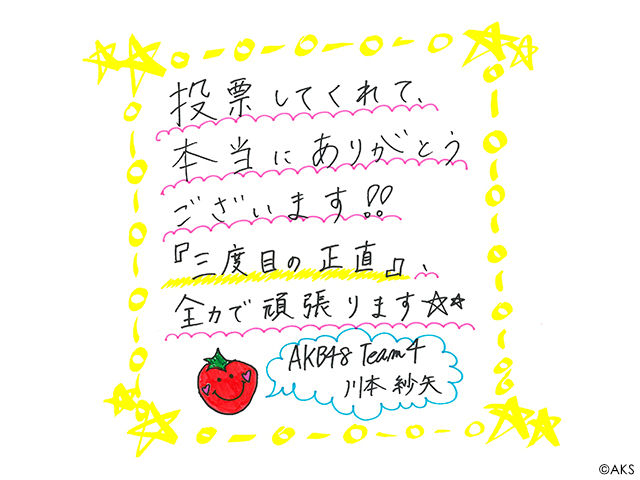 投票してくれて、
本当にありがとう
ございます!!
『三度目の正直』、
全力で頑張ります☆☆
AKB48 Team4
川本紗矢
©AKS